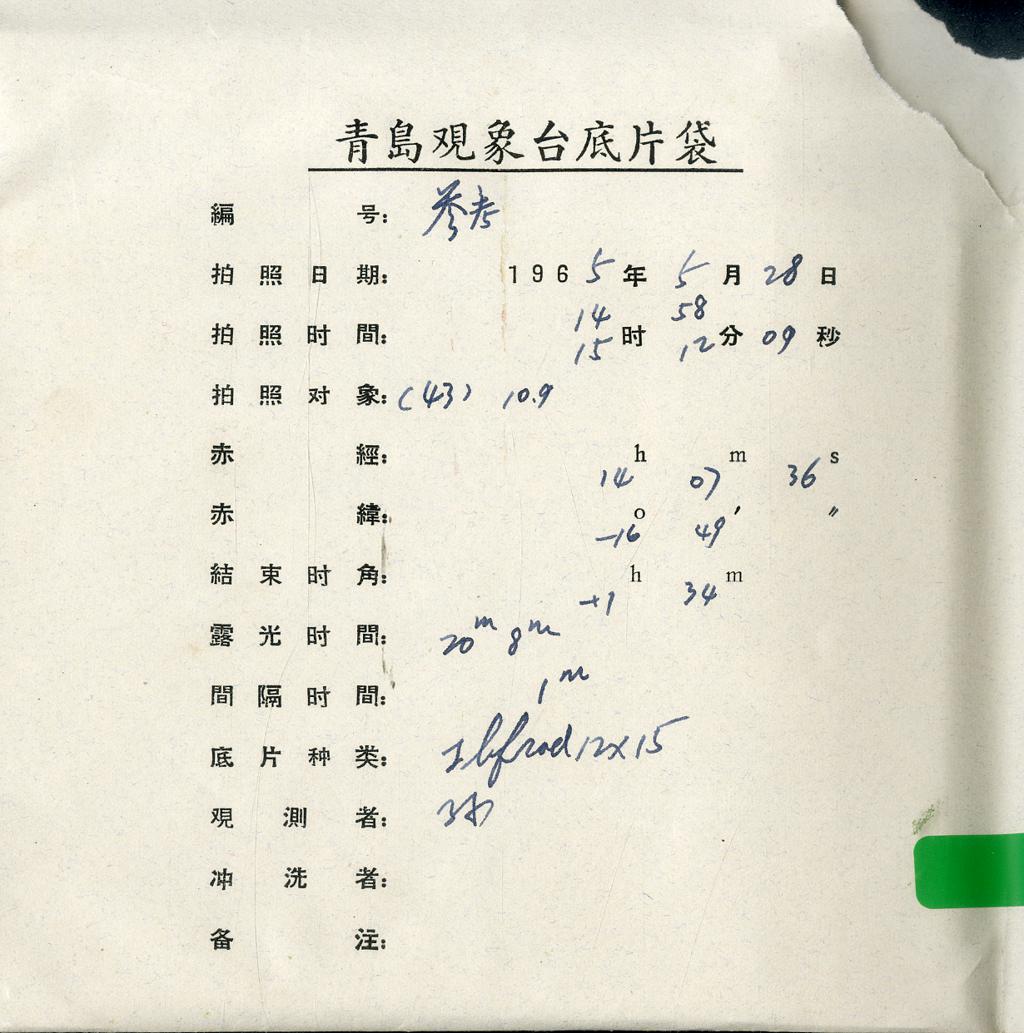 青島观象台底片袋
編号: 参考
拍照日期: 1965年 5月 28日
14 58
拍照时間: 时 分 09 秒
15 12
拍照对象: (43) 10.9
赤經: h m s
14 07 36
赤緯: o ′ ″
-16 49
結束时角: h m
+1 34
露光时間: 20m 8m
間隔时間: 1m
底片种类: Ilford 12×15
观測者:
冲洗者:
备注: